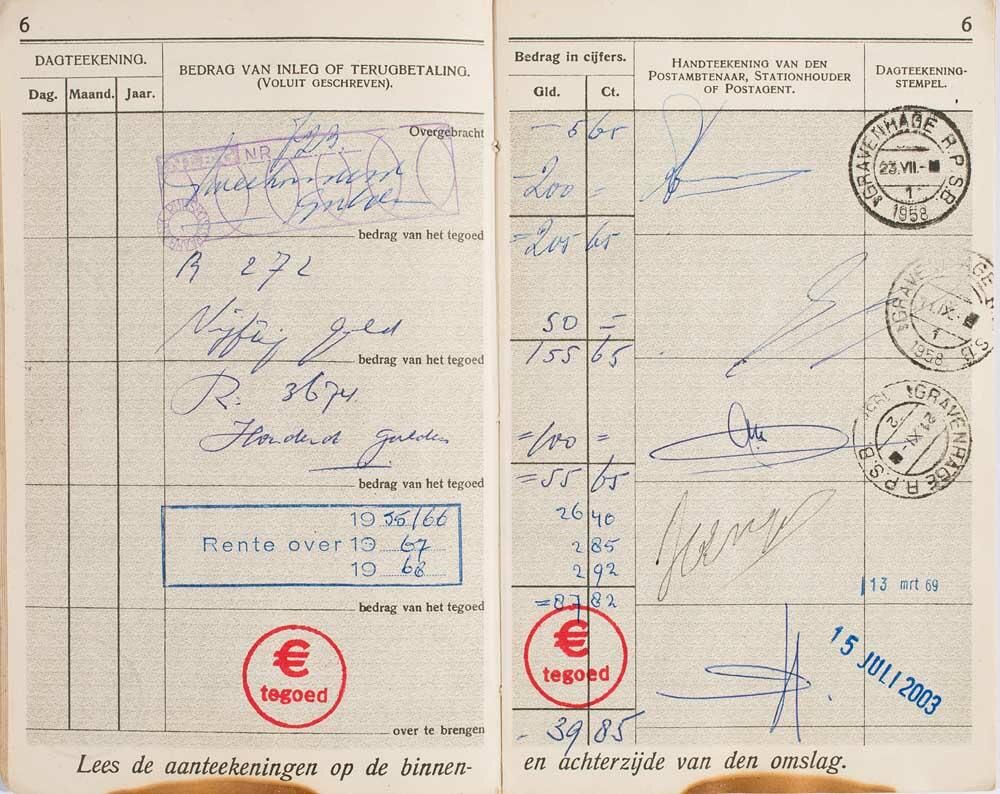 6
DAGTEEKENING.
Dag. Maand. Jaar.
BEDRAG VAN INLEG OF TERUGBETALING.
(VOLUIT GESCHREVEN).
Overgebracht
INLEG NR
Tweehonderd
Gulden
bedrag van het tegoed
R 272
Vijftig Gld
bedrag van het tegoed
R. 3674
Honderd gulden
bedrag van het tegoed
1955/66
Rente over 1967
1968
bedrag van het tegoed
€
tegoed
over te brengen
Lees de aanteekeningen op de binnen-
6
Bedrag in cijfers.
Gld. Ct.
HANDTEEKENING VAN DEN
POSTAMBTENAAR, STATIONHOUDER
OF POSTAGENT.
DAGTEEKENING-
STEMPEL.
- 5 65
200 =
= 205 65
50 =
155 65
= 100 =
= 55 65
26 40
2 85
2 92
= 87 82
€
tegoed
- 39 85
'sGRAVENHAGE R.P.S.B.
23.VII.-
1
1958
'sGRAVENHAGE R.P.S.B
11.IX.-
1
1958
'sGRAVENHAGE R.P.S.B.
21.XI.-
2
13 mrt 69
15 JULI 2003
en achterzijde van den omslag.